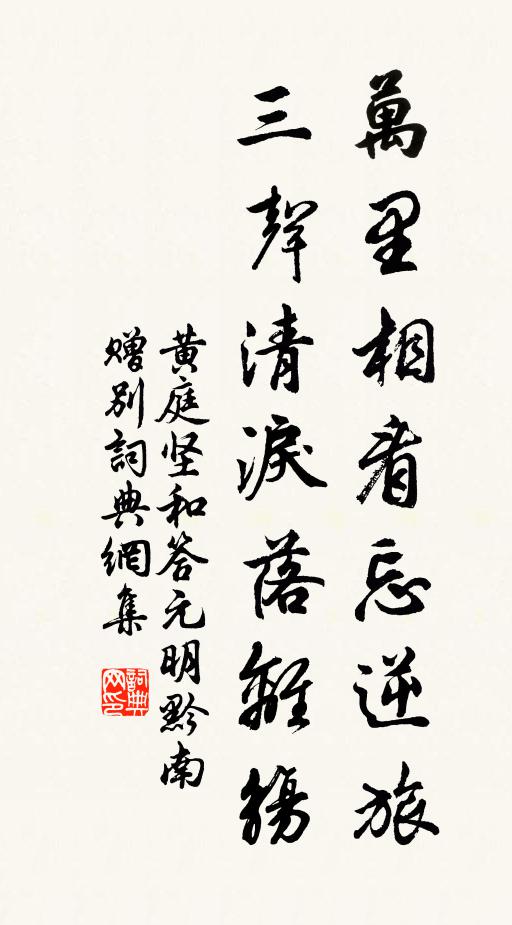 萬里相看忘逆旅
三聲清淚落離觴
黄庭坚和答元明黔南
赠别詞典網集
詞典网印